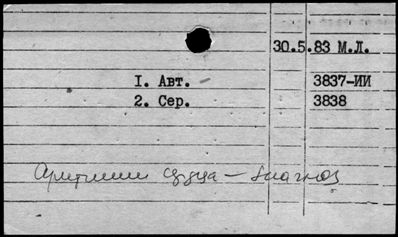 30.5.83 М.Л.
1. Авт. 3837-ИИ
2. Сер. 3838
Аритмии сердца – диагноз